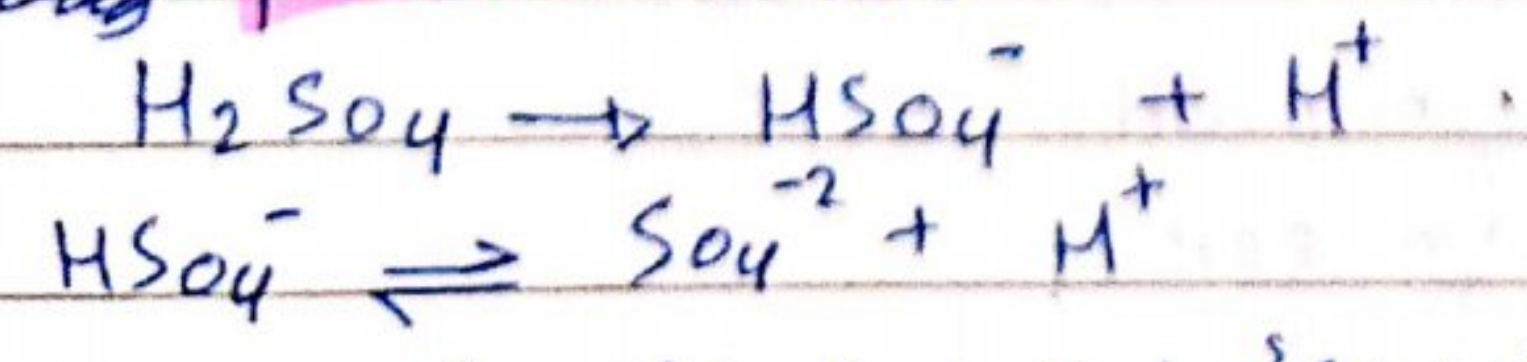 H₂SO₄ → HSO₄⁻ + H⁺
HSO₄⁻ ⇌ SO₄⁻² + H⁺